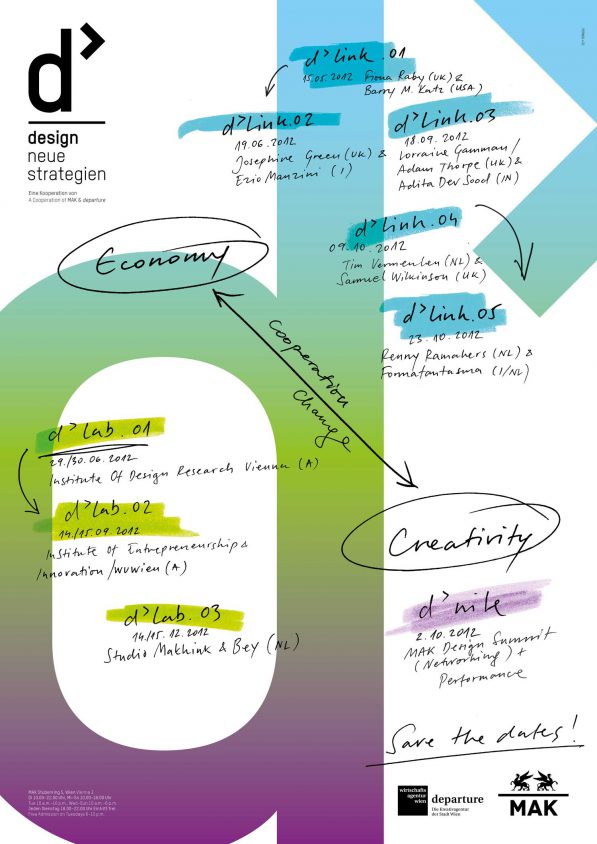 d>
design
neue
strategien
Eine Kooperation von
A Cooperation of MAK & departure
d>link.01
15.05.2012 Fiona Raby (UK) &
Barry M. Katz (USA)
d>link.02
19.06.2012
Josephine Green (UK) &
Ezio Manzini (I)
d>link.03
18.09.2012
Lorraine Gamman/
Adam Thorpe (UK) &
Adita Dev Sood (IN)
d>link.04
09.10.2012
Tim Vermeulen (NL) &
Samuel Wilkinson (UK)
d>link.05
23.10.2012
Renny Ramakers (NL) &
Formafantasma (I/NL)
Economy
Cooperation
Change
Creativity
d>lab.01
29./30.06.2012
Institute Of Design Research Vienna (A)
d>lab.02
14./15.09.2012
Institute of Entrepreneurship &
Innovation/WUWien (A)
d>lab.03
14./15.12.2012
Studio Makkink & Bey (NL)
d>nite
2.10.2012
MAK Design Summit
(Networking) +
Performance
Save the dates!
MAK Stubenring 5, Wien Vienna 1
Di 10.00–22.00 Uhr, Mi–So 10.00–18.00 Uhr
Tue 10 a.m.–10 p.m., Wed–Sun 10 a.m.–6 p.m.
Jeden Dienstag 18.00–22.00 Uhr Eintritt frei
Free Admission on Tuesdays 6–10 p.m.
wirtschafts
agentur
wien
departure
Die Kreativagentur
der Stadt Wien
MAK